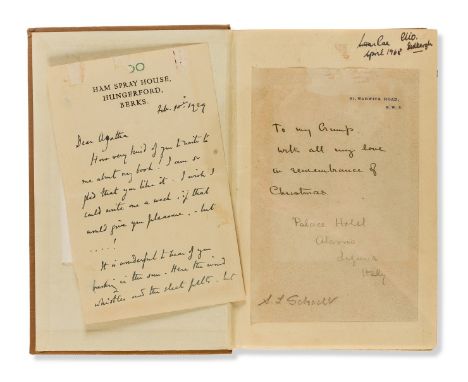 HAM SPRAY HOUSE,
HUNGERFORD,
BERKS.
Feb. 10th 1929
Dear Agatha
How very kind of you to write to
me about my book! I am so
glad that you like it. I wish I
could write one a week if that
would give you pleasure .. but
....!
It is wonderful to hear of you
basking in the sun. Here the wind
whistles and the sleet pelts. but
April 1968
WARWICK ROAD,
To my Gramps
with all my love
a remembrance of
Christmas
Palace Hotel
Alassio
Liguria
Italy